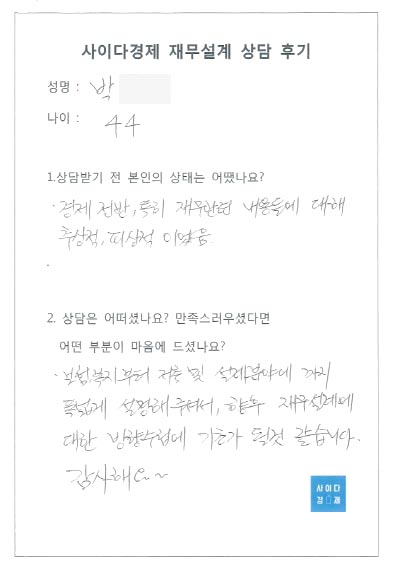 사이다경제 재무설계 상담 후기
성명 : 박
나이 : 44
1.상담받기 전 본인의 상태는 어땠나요?
· 경제 전반, 특히 재무관련 내용들에 대해
추상적, 피상적 이었음.
2. 상담은 어떠셨나요? 만족스러우셨다면
어떤 부분이 마음에 드셨나요?
· 보험복지부터 저축 및 설계분야에 까지
폭넓게 설명해 주셔서, 향후 재무설계에
대한 방향수립에 기초가 될것 같습니다.
감사해요~~
사이다
경제